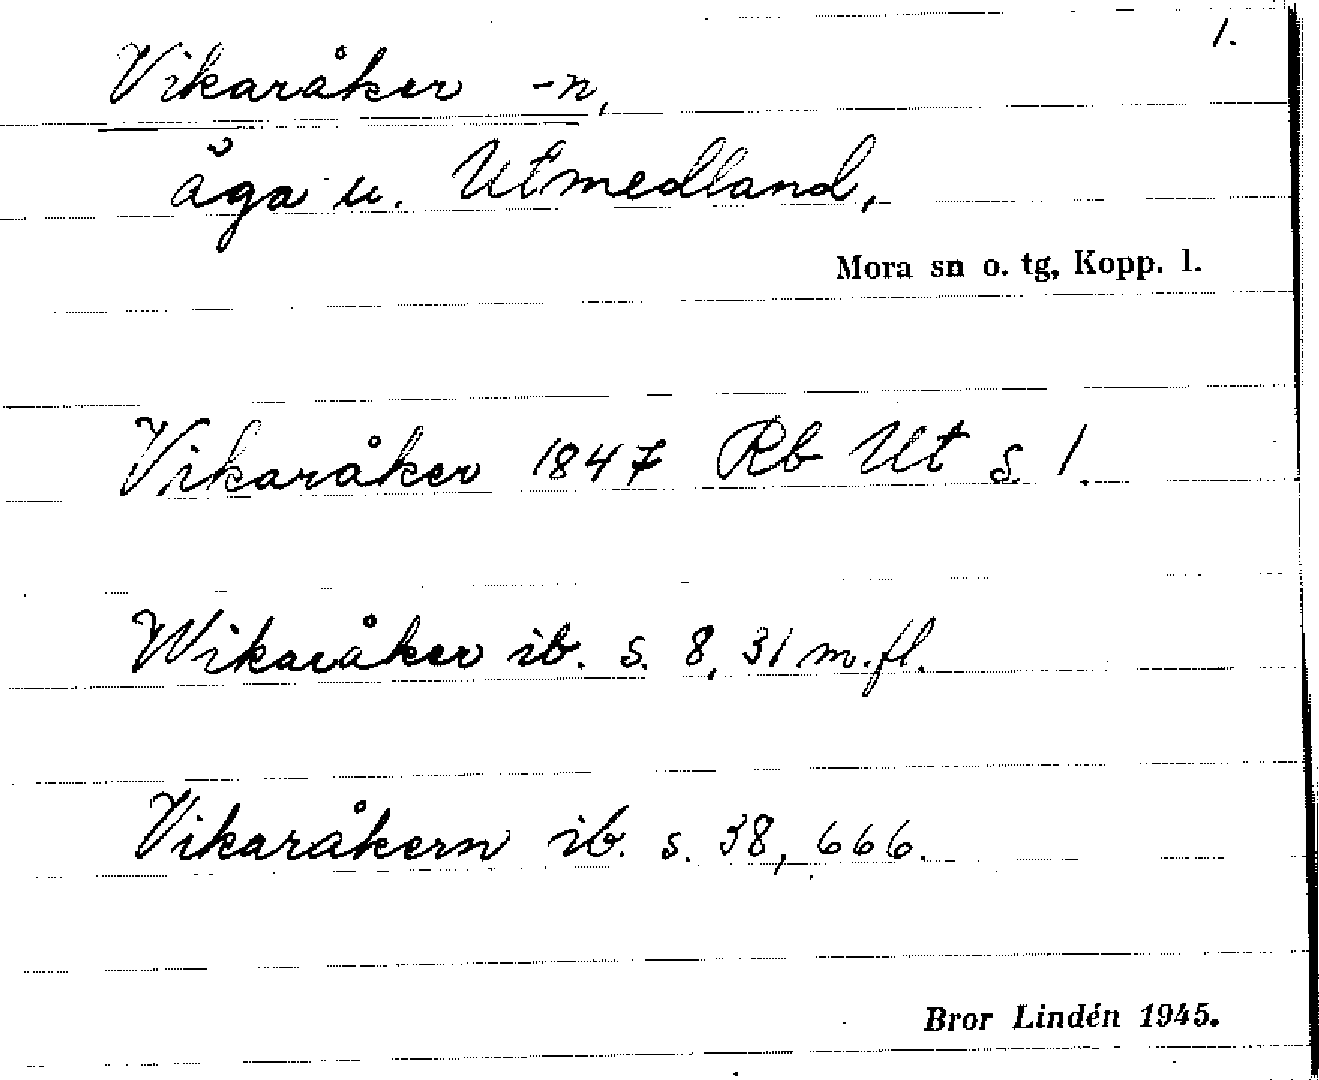 1.
Vikaråker -n,
åga u. Utmedland,
Mora sn o. tg, Kopp. l.
Vikaråker 1847 Rb Ut s. 1.
Wikaråker ib. s. 8, 31 m.fl.
Vikaråkern ib. s. 38, 666.
Bror Lindén 1945.